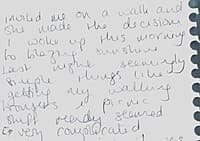 invited me on a walk and
she made the decision
I woke up this morning
to blazing sunshine
Last night seemingly
simple things like
getting my walking
trousers & picnic
stuff ready seemed
very complicated